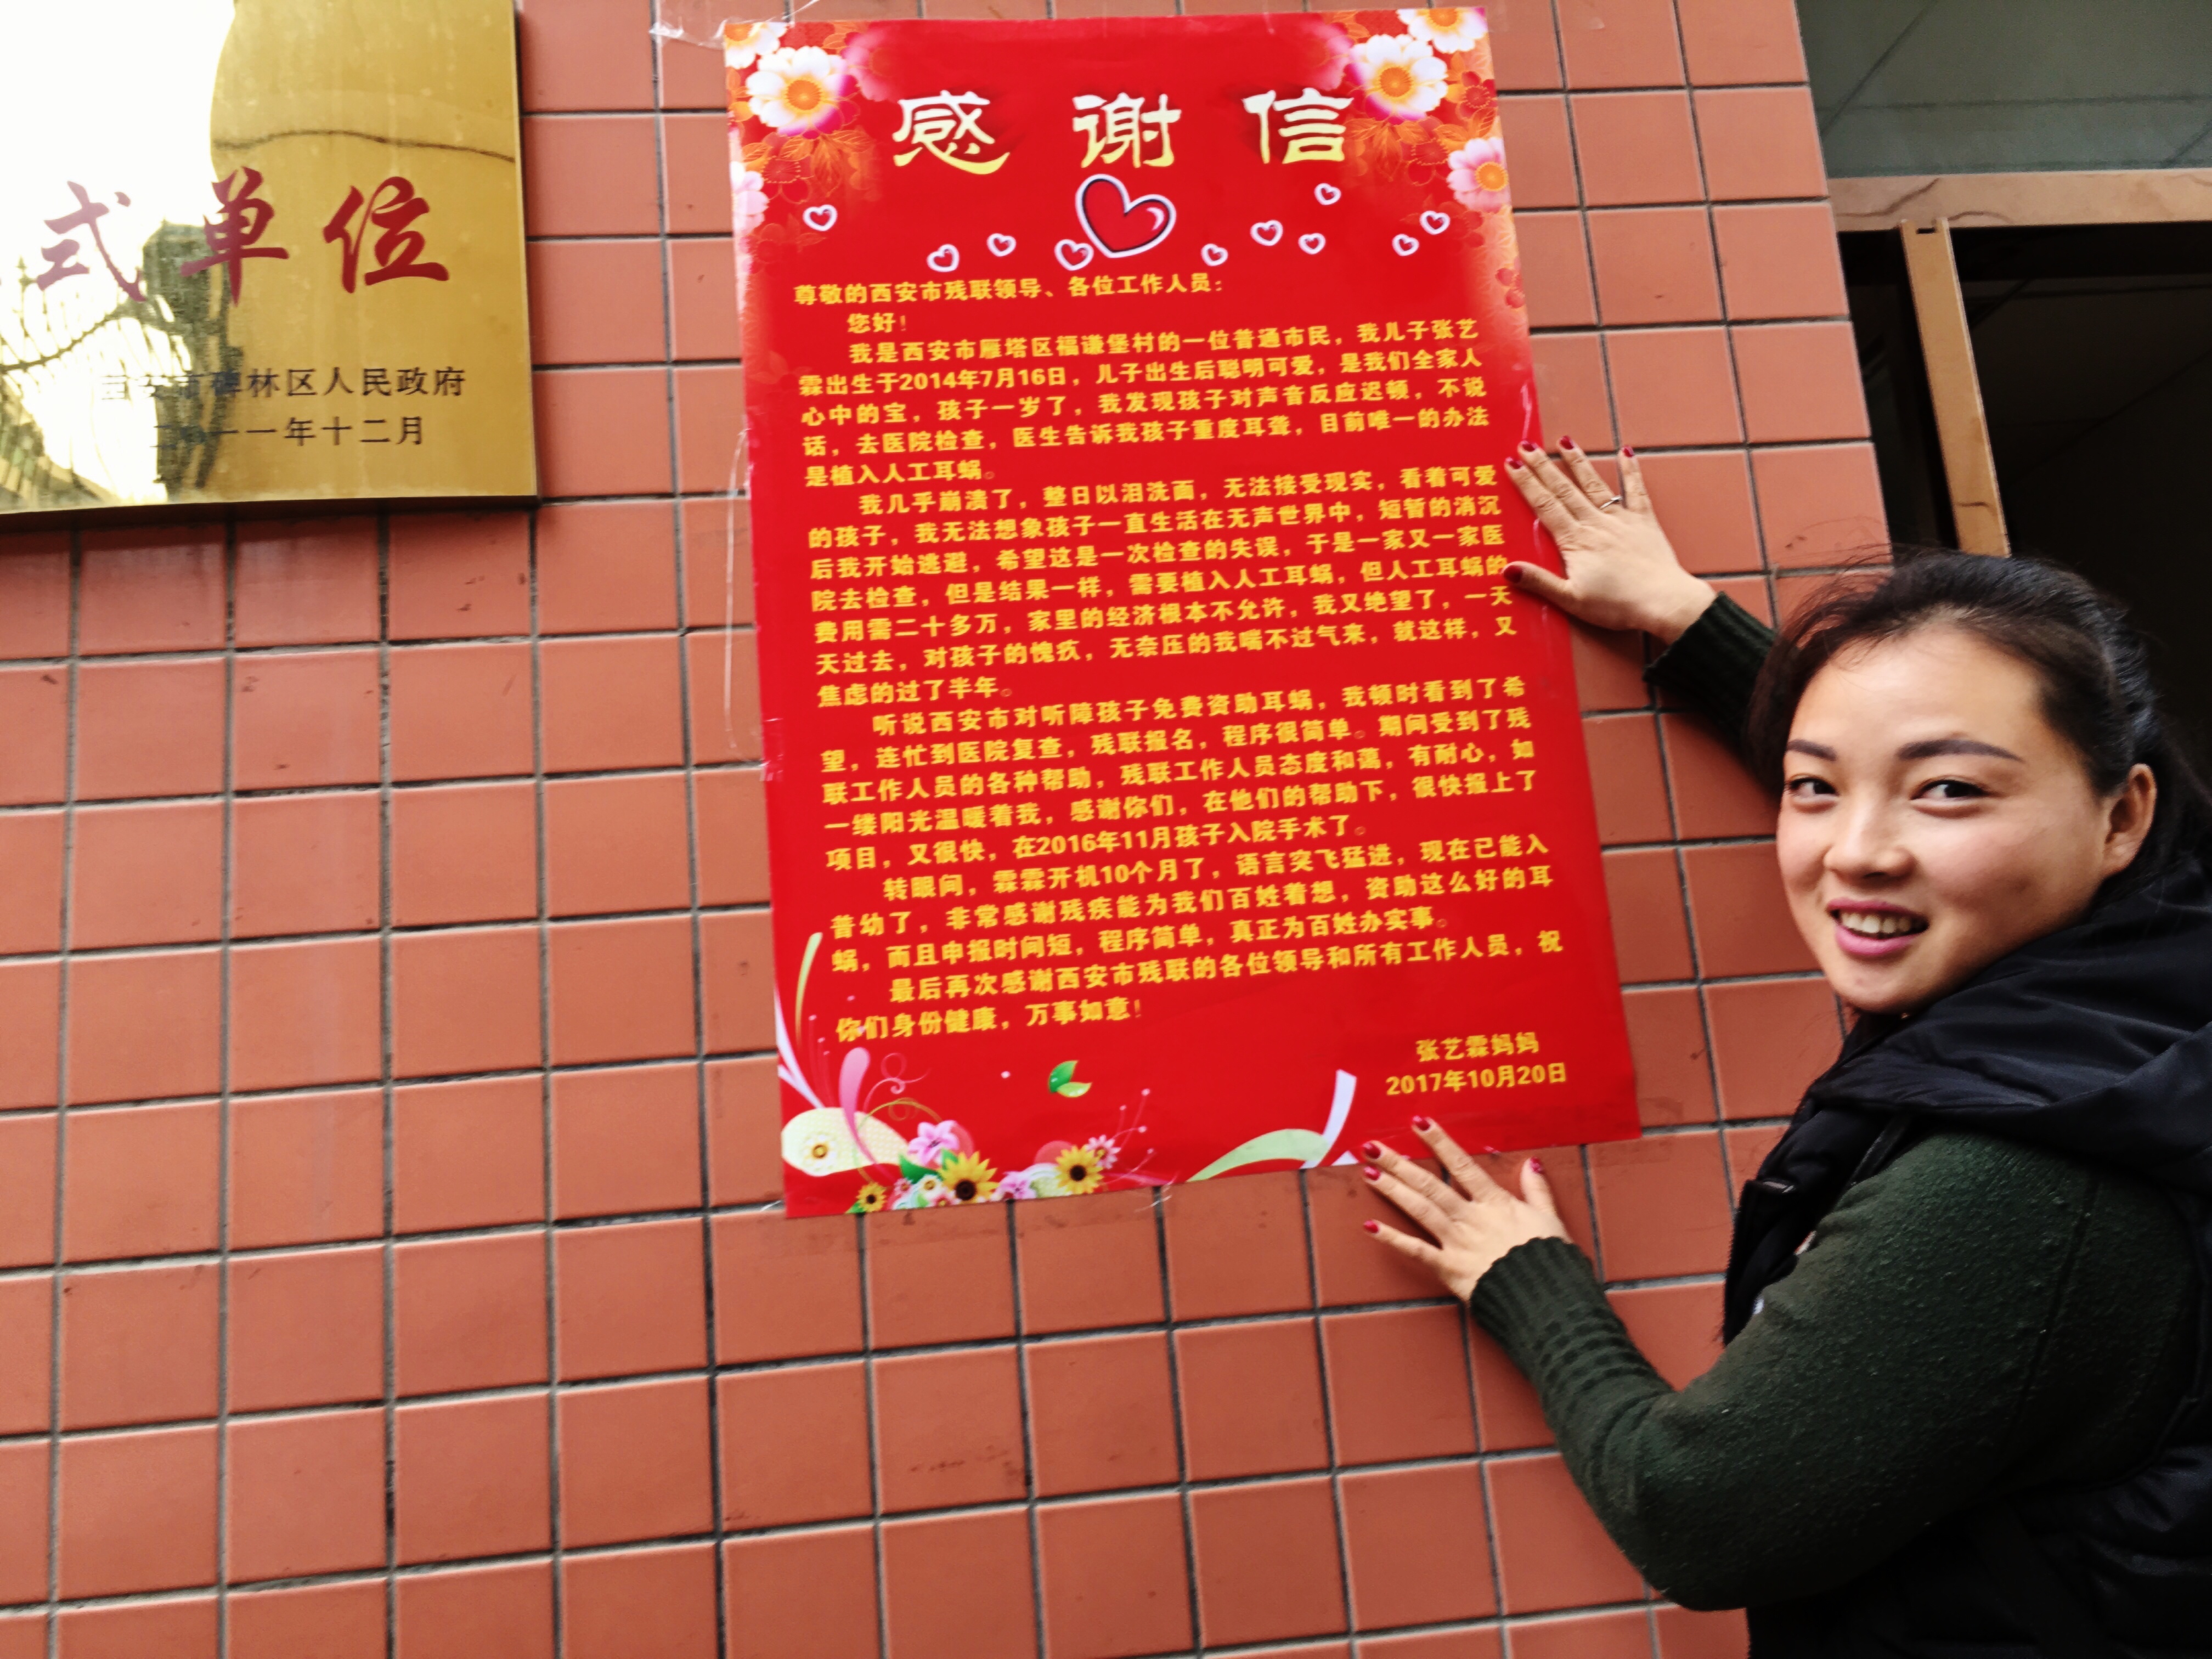 式单位
西安市碑林区人民政府
一一年十二月
感谢信
尊敬的西安市残联领导、各位工作人员：
您好！
我是西安市雁塔区福谦堡村的一位普通市民，我儿子张艺
霖出生于2014年7月16日，儿子出生后聪明可爱，是我们全家人
心中的宝，孩子一岁了，我发现孩子对声音反应迟顿，不说
话，去医院检查，医生告诉我孩子重度耳聋，目前唯一的办法
是植入人工耳蜗。
我几乎崩溃了，整日以泪洗面，无法接受现实，看着可爱
的孩子，我无法想象孩子一直生活在无声世界中，短暂的消沉
后我开始逃避，希望这是一次检查的失误，于是一家又一家医
院去检查，但是结果一样，需要植入人工耳蜗，但人工耳蜗的
费用需二十多万，家里的经济根本不允许，我又绝望了，一天
天过去，对孩子的愧疚，无奈压的我喘不过气来，就这样，又
焦虑的过了半年。
听说西安市对听障孩子免费资助耳蜗，我顿时看到了希
望，连忙到医院复查，残联报名，程序很简单。期间受到了残
联工作人员的各种帮助，残联工作人员态度和蔼，有耐心，如
一缕阳光温暖着我，感谢你们，在他们的帮助下，很快报上了
项目，又很快，在2016年11月孩子入院手术了。
转眼间，霖霖开机10个月了，语言突飞猛进，现在已能入
普幼了，非常感谢残疾能为我们百姓着想，资助这么好的耳
蜗，而且申报时间短，程序简单，真正为百姓办实事。
最后再次感谢西安市残联的各位领导和所有工作人员，祝
你们身份健康，万事如意！
张艺霖妈妈
2017年10月20日